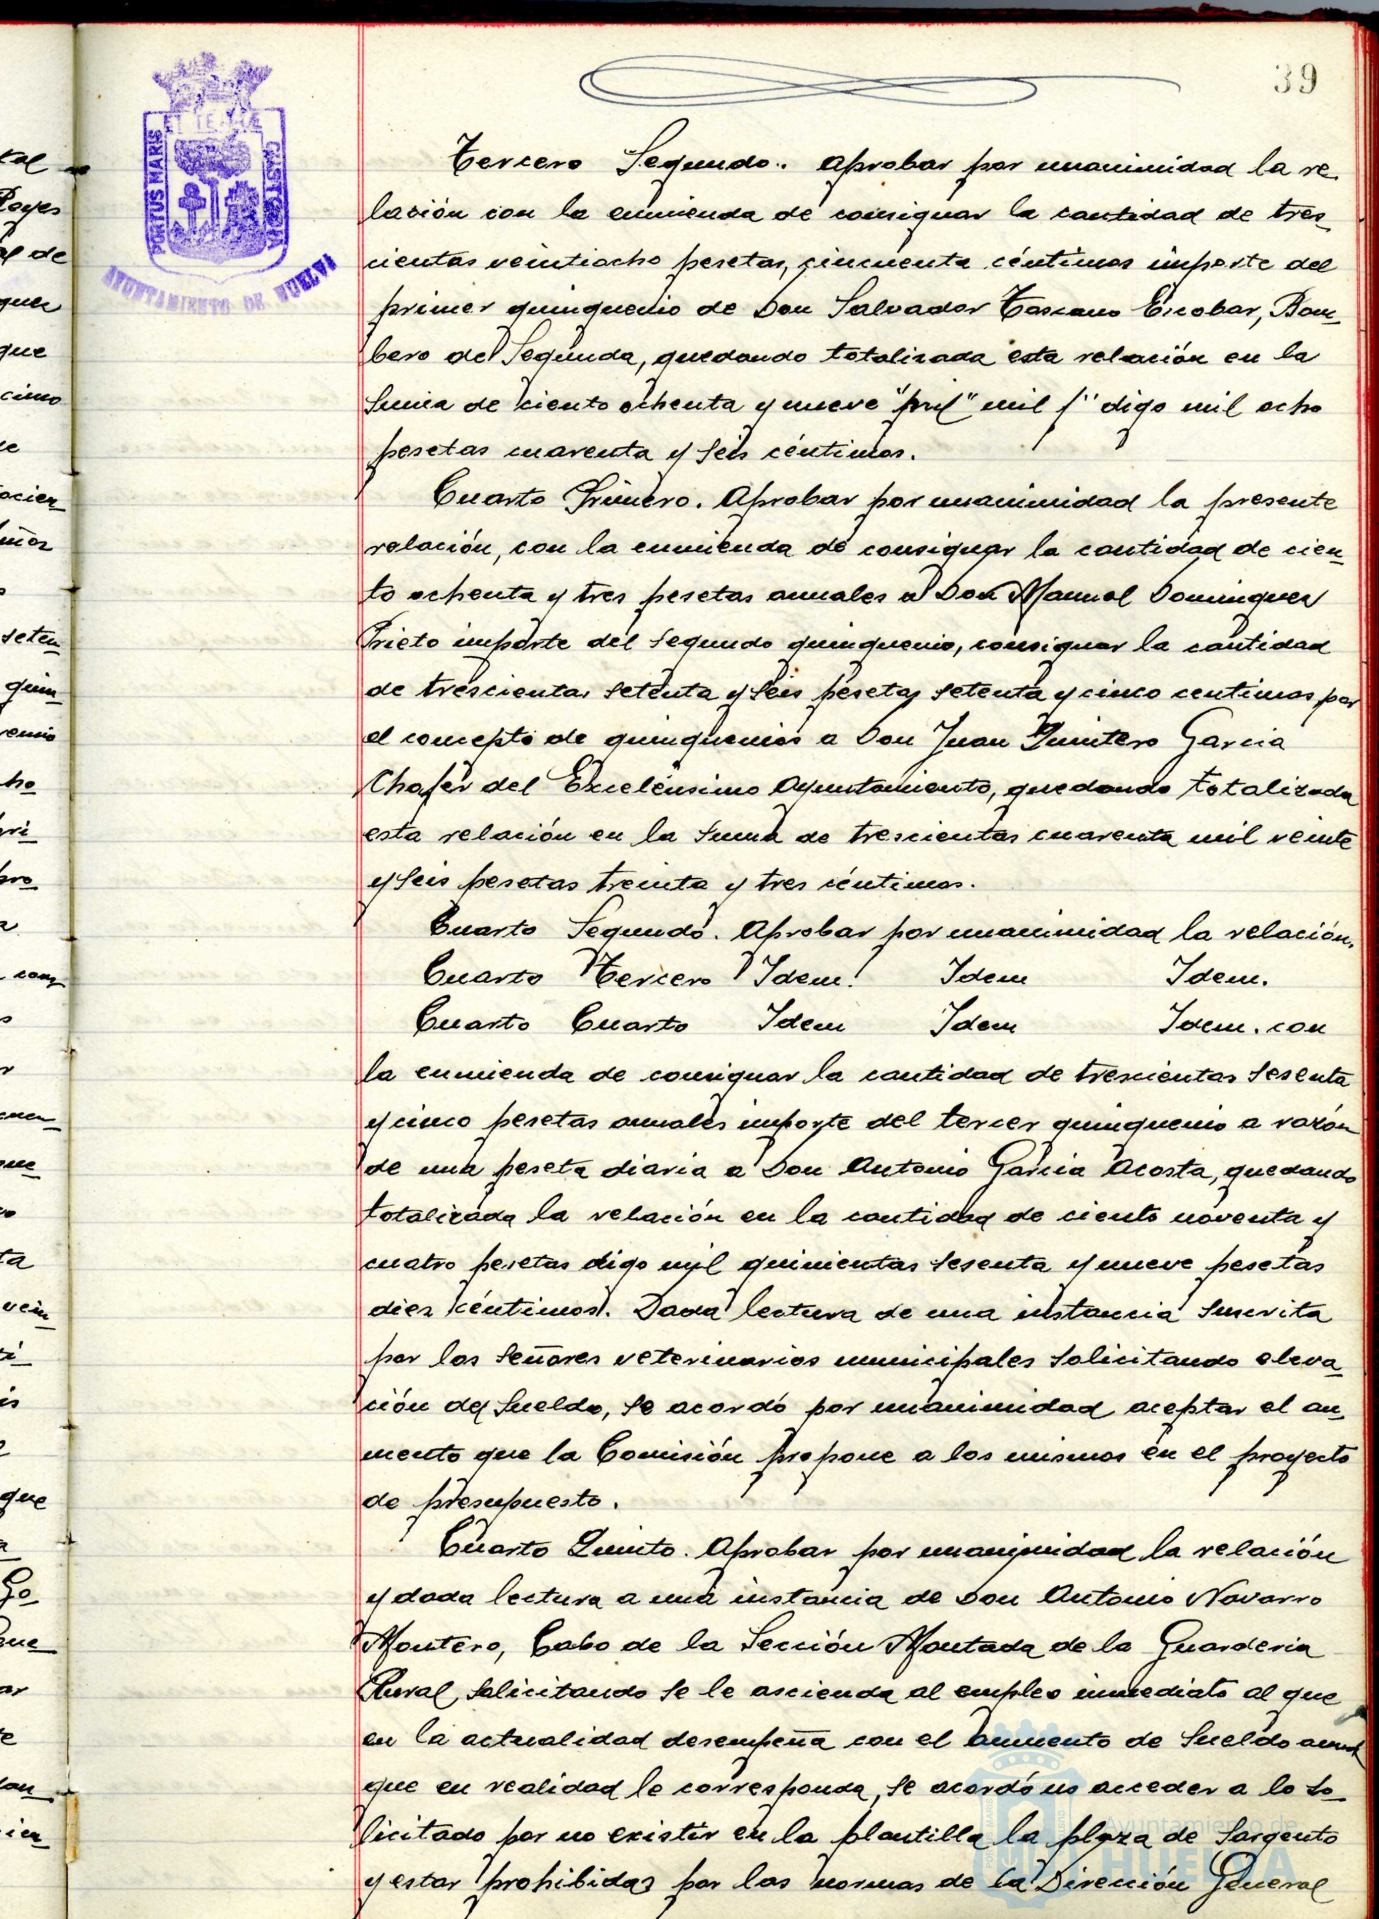 39
ET TERRÆ
PORTUS MARIS
CUSTODIA
AYUNTAMIENTO DE HUELVA
Tercero Segundo. Aprobar por unanimidad la re-
lación con la enmienda de consignar la cantidad de tres-
cientas veintiocho pesetas, cincuenta céntimos importe del
primer quinquenio de Don Salvador Toscano Escobar, Bom-
bero de Segunda, quedando totalizada esta relación en la
suma de ciento ochenta y nueve "pril" mil f" digo mil ocho
pesetas cuarenta y seis céntimos.
Cuarto Primero. Aprobar por unanimidad la presente
relación, con la enmienda de consignar la cantidad de cien-
to ochenta y tres pesetas anuales a Don Manuel Dominguez
Prieto importe del segundo quinquenio, consignar la cantidad
de trescientas setenta y seis pesetas setenta y cinco centimos por
el concepto de quinquenios a Don Juan Quintero Garcia
Chofer del Excelensimo Ayuntamiento, quedando totalizada
esta relación en la suma de trescientas cuarenta mil veinte
y seis pesetas treinta y tres céntimos.
Cuarto Segundo. Aprobar por unanimidad la relación.
Cuarto Tercero Idem. Idem Idem.
Cuarto Cuarto Idem Idem Idem. con
la enmienda de consignar la cantidad de trescientas sesenta
y cinco pesetas anuales importe del tercer quinquenio a razón
de una peseta diaria a Don Antonio Garcia Acosta, quedando
totalizada la relación en la cantidad de ciento noventa y
cuatro pesetas digo mil quinientas sesenta y nueve pesetas
diez céntimos. Dada lectura de una instancia suscrita
por los señores veterinarios municipales solicitando eleva-
ción de sueldo, se acordó por unanimidad aceptar el au-
mento que la Comisión propone a los mismos en el proyecto
de presupuesto.
Cuarto Quinto. Aprobar por unanimidad la relación
y dada lectura a una instancia de Don Antonio Navarro
Montero, Cabo de la Sección Montada de la Guarderia
Rural, solicitando se le ascienda al empleo inmediato al que
en la actualidad desempeña con el aumento de sueldo anual
que en realidad le corresponda, se acordó no acceder a lo so-
licitado por no existir en la plantilla la plaza de Sargento
y estar prohibidas por las normas de la Dirección General
Ayuntamiento de
HUELVA